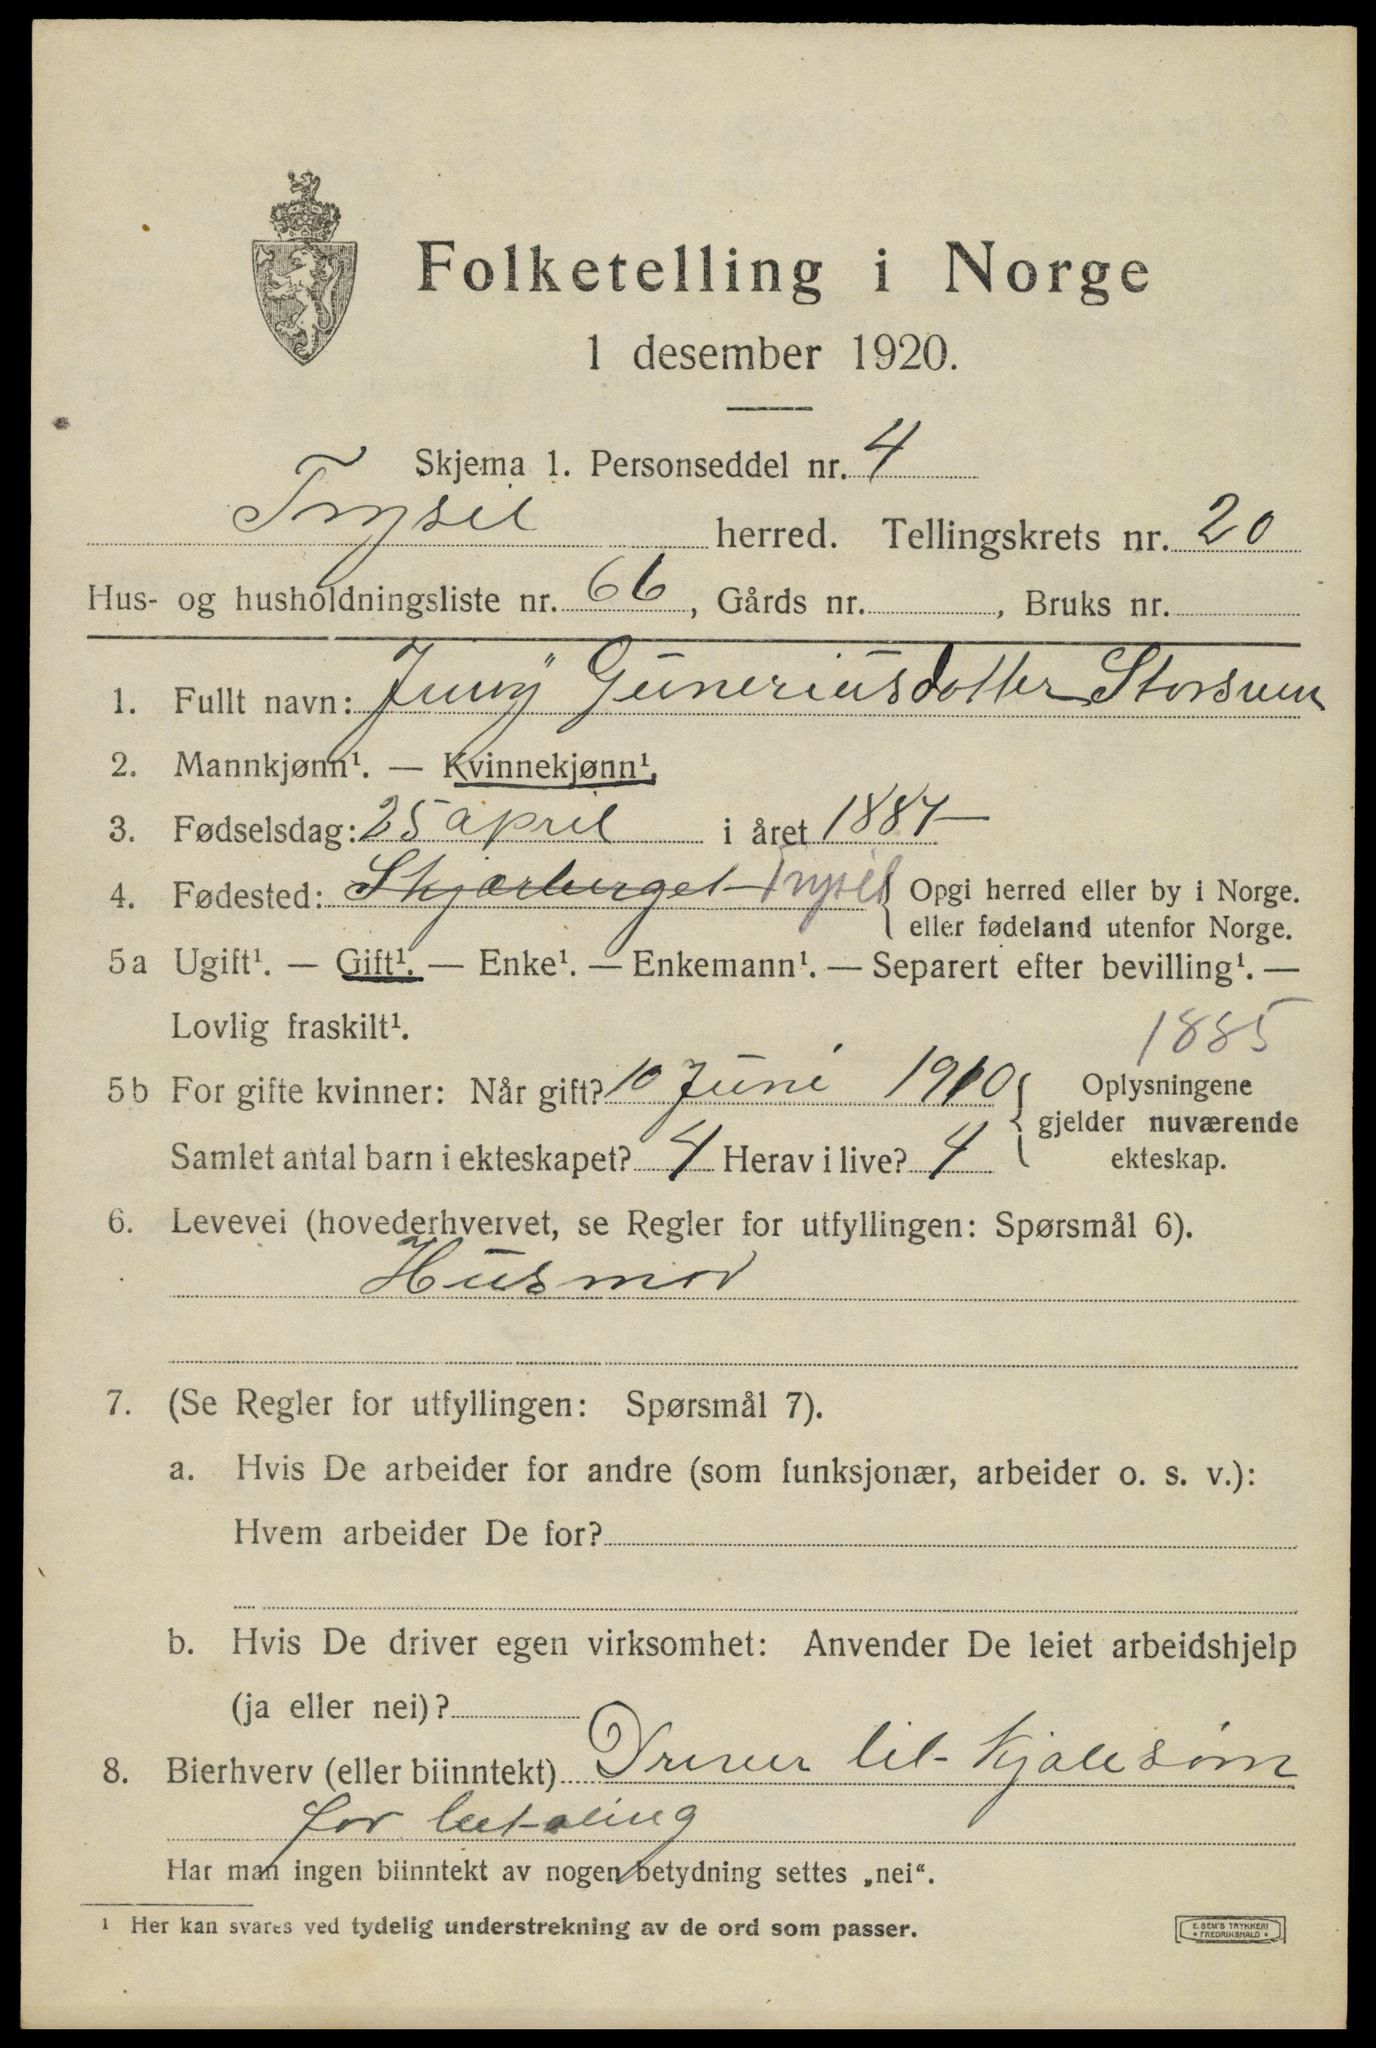 Folketelling i Norge
1 desember 1920.
Skjema 1. Personseddel nr. 4
Trysil herred. Tellingskrets nr. 20
Hus- og husholdningsliste nr. 66, Gårds nr. , Bruks nr.
1. Fullt navn: Guneriusdotter
2. Mannkjønn¹. — Kvinnekjønn¹.
3. Fødselsdag: 25 april i året 1887
4. Fødested: Skjærberget Trysil { Opgi herred eller by i Norge.
eller fødeland utenfor Norge.
5a Ugift¹. — Gift¹. — Enke¹. — Enkemann¹. — Separert efter bevilling¹. —
Lovlig fraskilt¹. 1885
5b For gifte kvinner: Når gift? 10 Juni 1910 { Oplysningene
gjelder nuværende
Samlet antal barn i ekteskapet? 4 Herav i live? 4 ekteskap.
6. Levevei (hovederhvervet, se Regler for utfyllingen: Spørsmål 6).
Husmor
7. (Se Regler for utfyllingen: Spørsmål 7).
a. Hvis De arbeider for andre (som funksjonær, arbeider o. s. v.):
Hvem arbeider De for?
b. Hvis De driver egen virksomhet: Anvender De leiet arbeidshjelp
(ja eller nei)?
8. Bierhverv (eller biinntekt) lit kjolesøm
for betaling
Har man ingen biinntekt av nogen betydning settes „nei“.
¹ Her kan svares ved tydelig understrekning av de ord som passer.
E. SEM'S TRYKKERI
FREDRIKSHALD